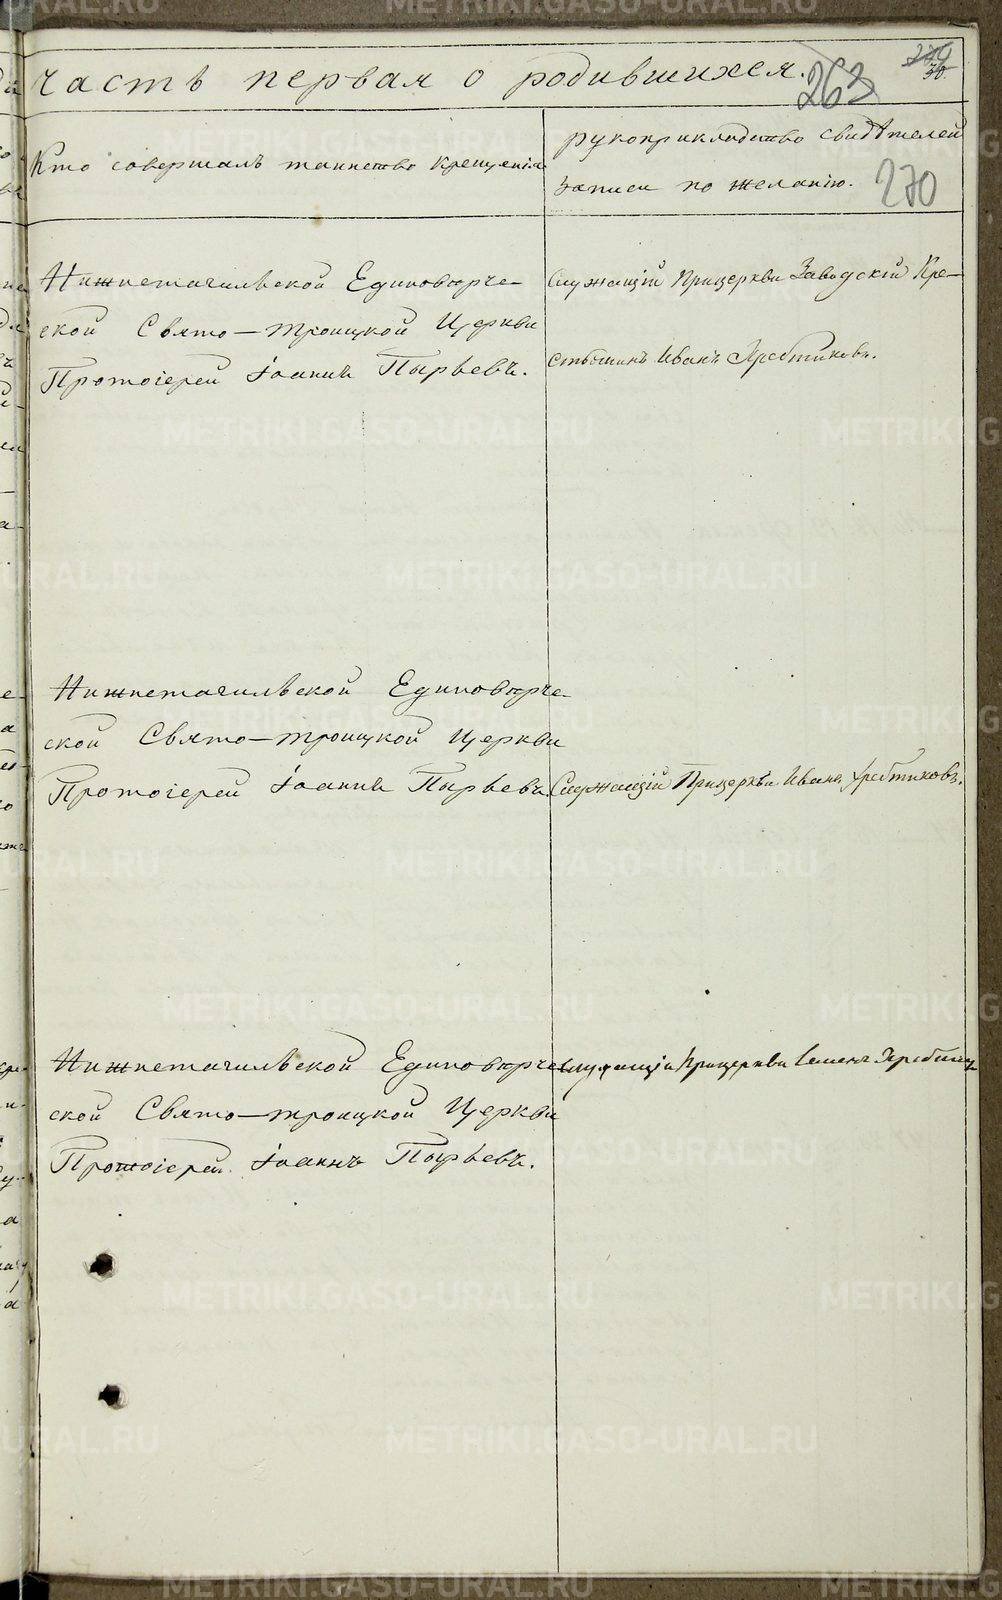 часть первая о родившихся.
263
30.
Кто совершалъ таинство крещенія
рукоприкладство свидѣтелей
записи по желанію.
270
Нижнетагильской Единовѣрче-
ской Свято-Троицкой Церкви
Протоіерей Іоаннъ Пырьевъ.
Служащій Прицеркви Заводскій Кре-
стьянинъ Иванъ
Нижнетагильской Единовѣрче-
ской Свято-Троицкой Церкви
Протоіерей Іоаннъ Пырьевъ.
Служащій Прицеркви Иванъ
Нижнетагильской Единовѣрче-
ской Свято-Троицкой Церкви
Протоіерей Іоаннъ Пырьевъ.
Служащій Прицеркви Семенъ
METRIKI.GASO-URAL.RU